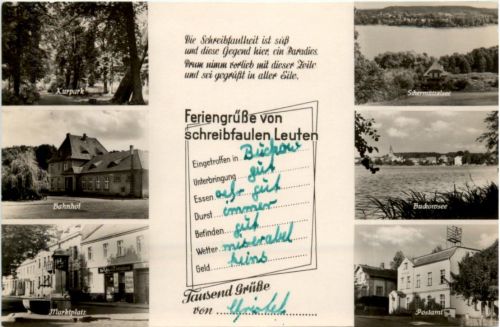 Die Schreibfaulheit ist süß
und diese Gegend hier, ein Paradies.
Drum nimm vorlieb mit dieser Zeile
und sei gegrüßt in aller Eile.
Kurpark
Schermützelsee
Feriengrüße von
schreibfaulen Leuten
Eingetroffen in Buckow
Unterbringung gut
Essen sehr gut
Durst immer
Befinden gut
Wetter miserabel
Geld keins
Tausend Grüße
von
Bahnhof
Buckowsee
Marktplatz
Postamt